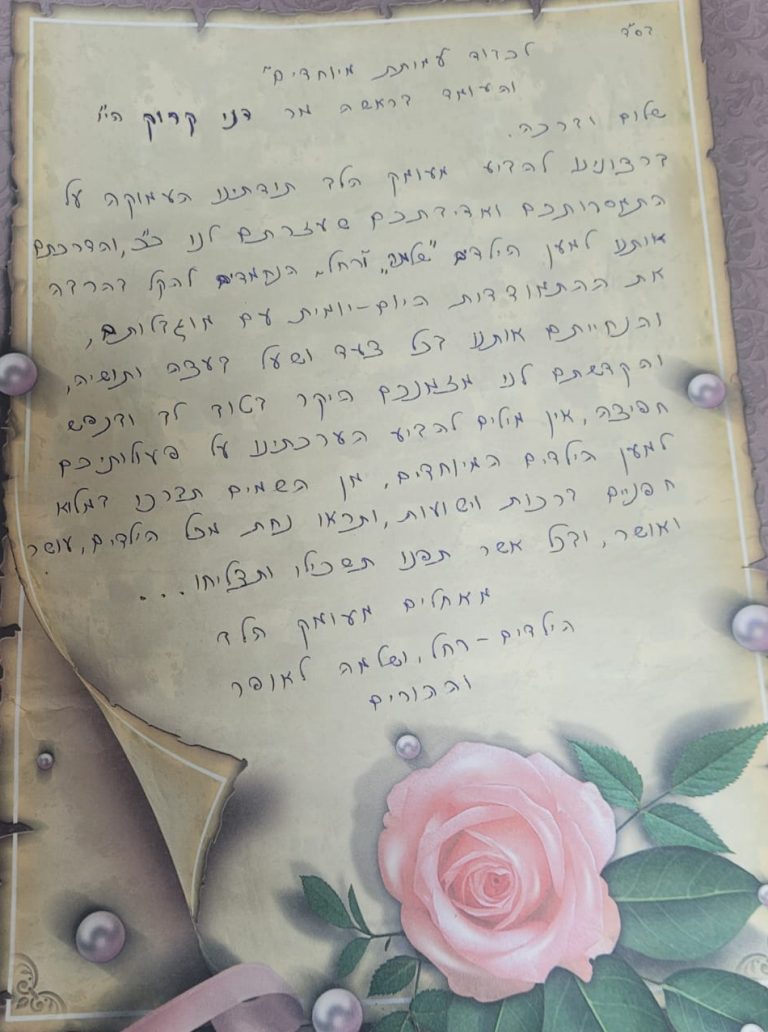 בס"ד
לכבוד עמותת מיוחדים"
והעומד בראשה מר דני קרוק הי"ו
שלום וברכה.
ברצונינו להביע מעומק הלב תודתינו העמוקה על
התמסרותכם ואדיבתכם שעזרתם לנו כ"כ, והדרכתם
אותנו למען הילדים "שלמה" ו"רחל" הנחמדים להקל בהרבה
את ההתמודדות היום-יומית עם מוגבלותם,
והנחייתם אותנו בכל צעד ושעל בעצה ותושיה,
והקדשתם לנו מזמנכם היקר בטוב לב ובנפש
חפיצה, אין מילים להביע הערכתינו על פעולותיכם
למען הילדים המיוחדים, מן השמים תברכו במלוא
חפניים ברכות וישועות, ותראו נחת מכל הילדים, עושר
ואושר, ובכל אשר תפנו תשכילו ותצליחו...
מאחלים מעומק הלב
הילדים-רחל, ושלמה לאופר
וההורים